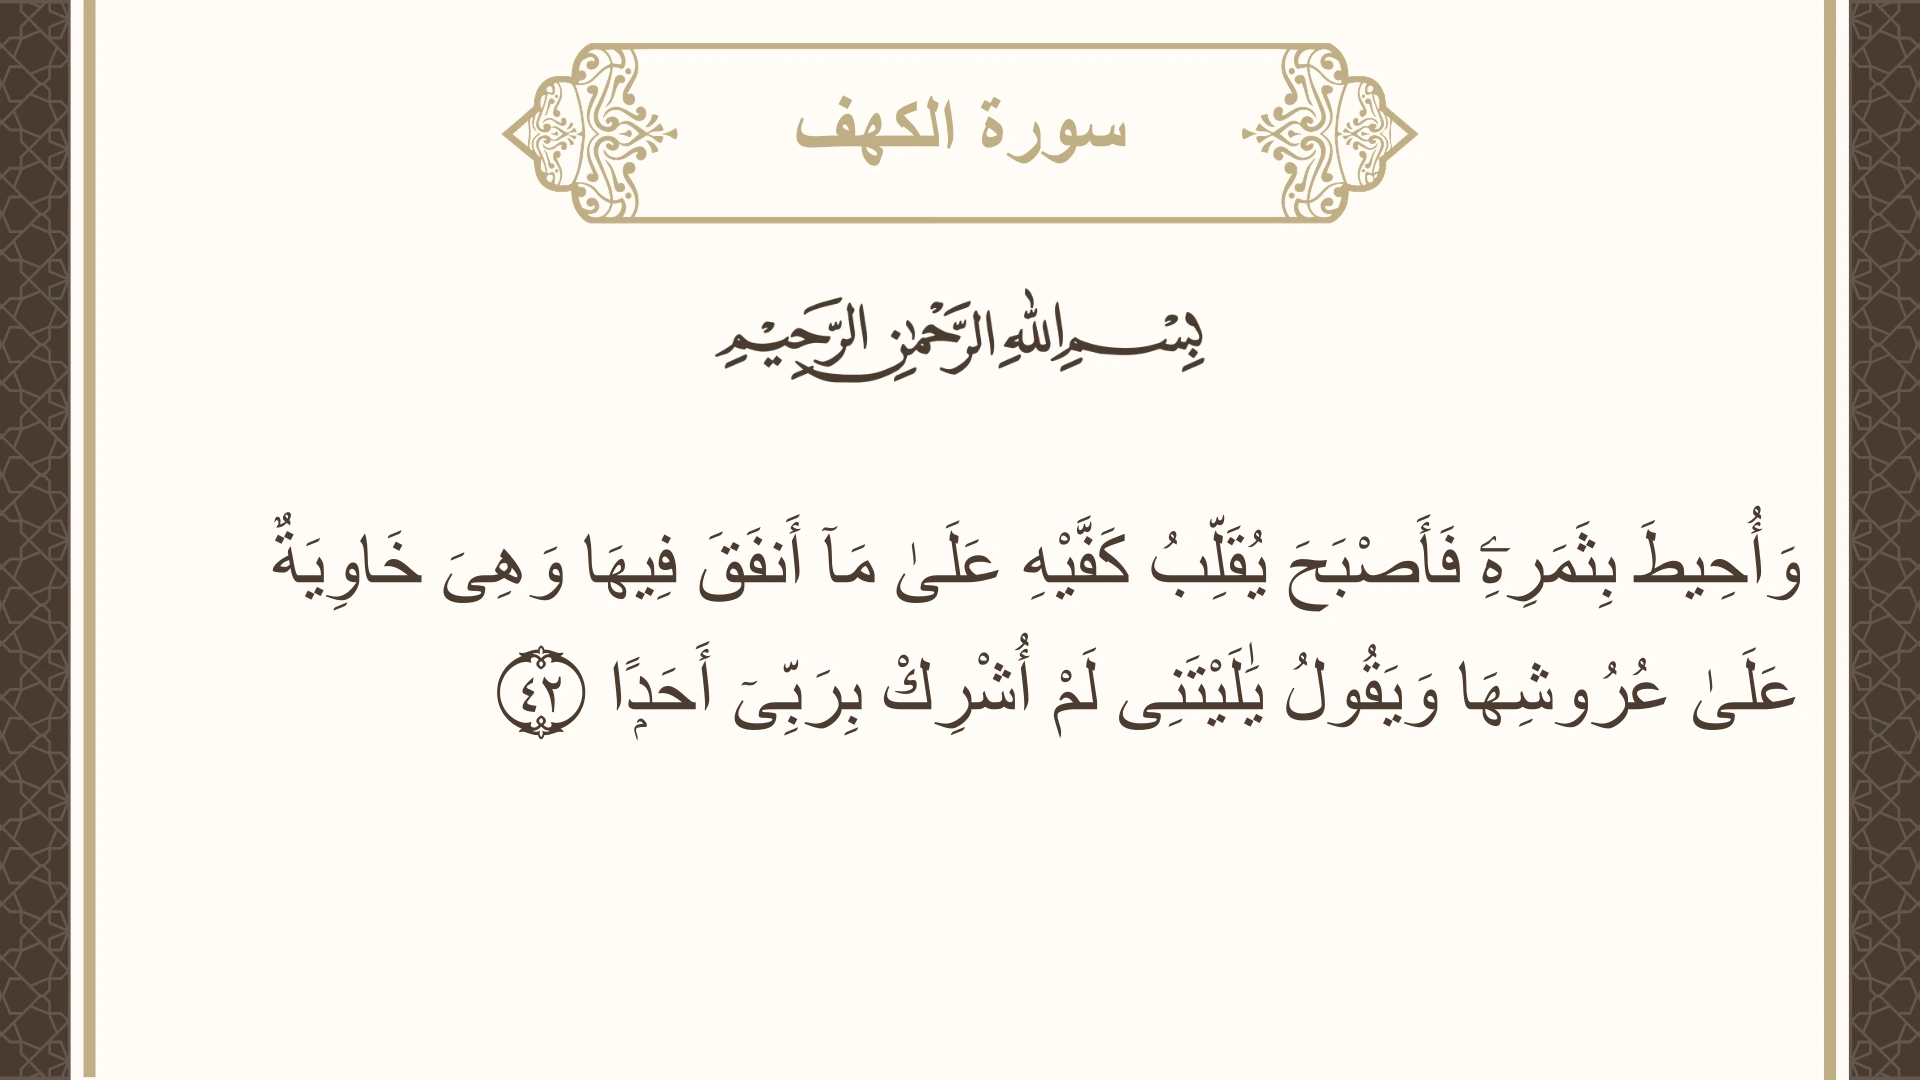 سورة الكهف
بِسْمِ اللهِ الرَّحْمٰنِ الرَّحِيْمِ
وَأُحِيطَ بِثَمَرِهِۦ فَأَصْبَحَ يُقَلِّبُ كَفَّيْهِ عَلَىٰ مَآ أَنفَقَ فِيهَا وَهِىَ خَاوِيَةٌ
عَلَىٰ عُرُوشِهَا وَيَقُولُ يَٰلَيْتَنِى لَمْ أُشْرِكْ بِرَبِّىٓ أَحَدًۭا ٤٢